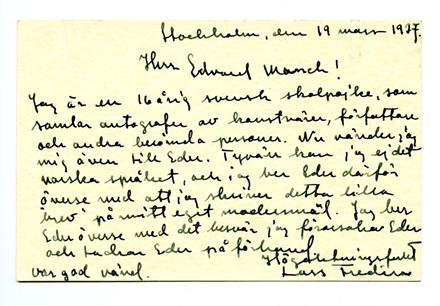 Stockholm, den 19 mars 1937.
Herr Edvard Munch!
Jag är en 16 årig svensk skolpojke, som
samlar autografer av konstnärer, författare
och andra berömda personer. Nu vänder jag
mig även till Eder. Tyvärr kan jag ej det
norska språket, och jag ber Eder därför
överse med att jag skriver detta lilla
brev på mitt eget modersmål. Jag ber
Eder överse med det besvär jag förorsakar Eder
och tackar Eder på förhand.
Högaktningsfullt
var god vänd. Lars